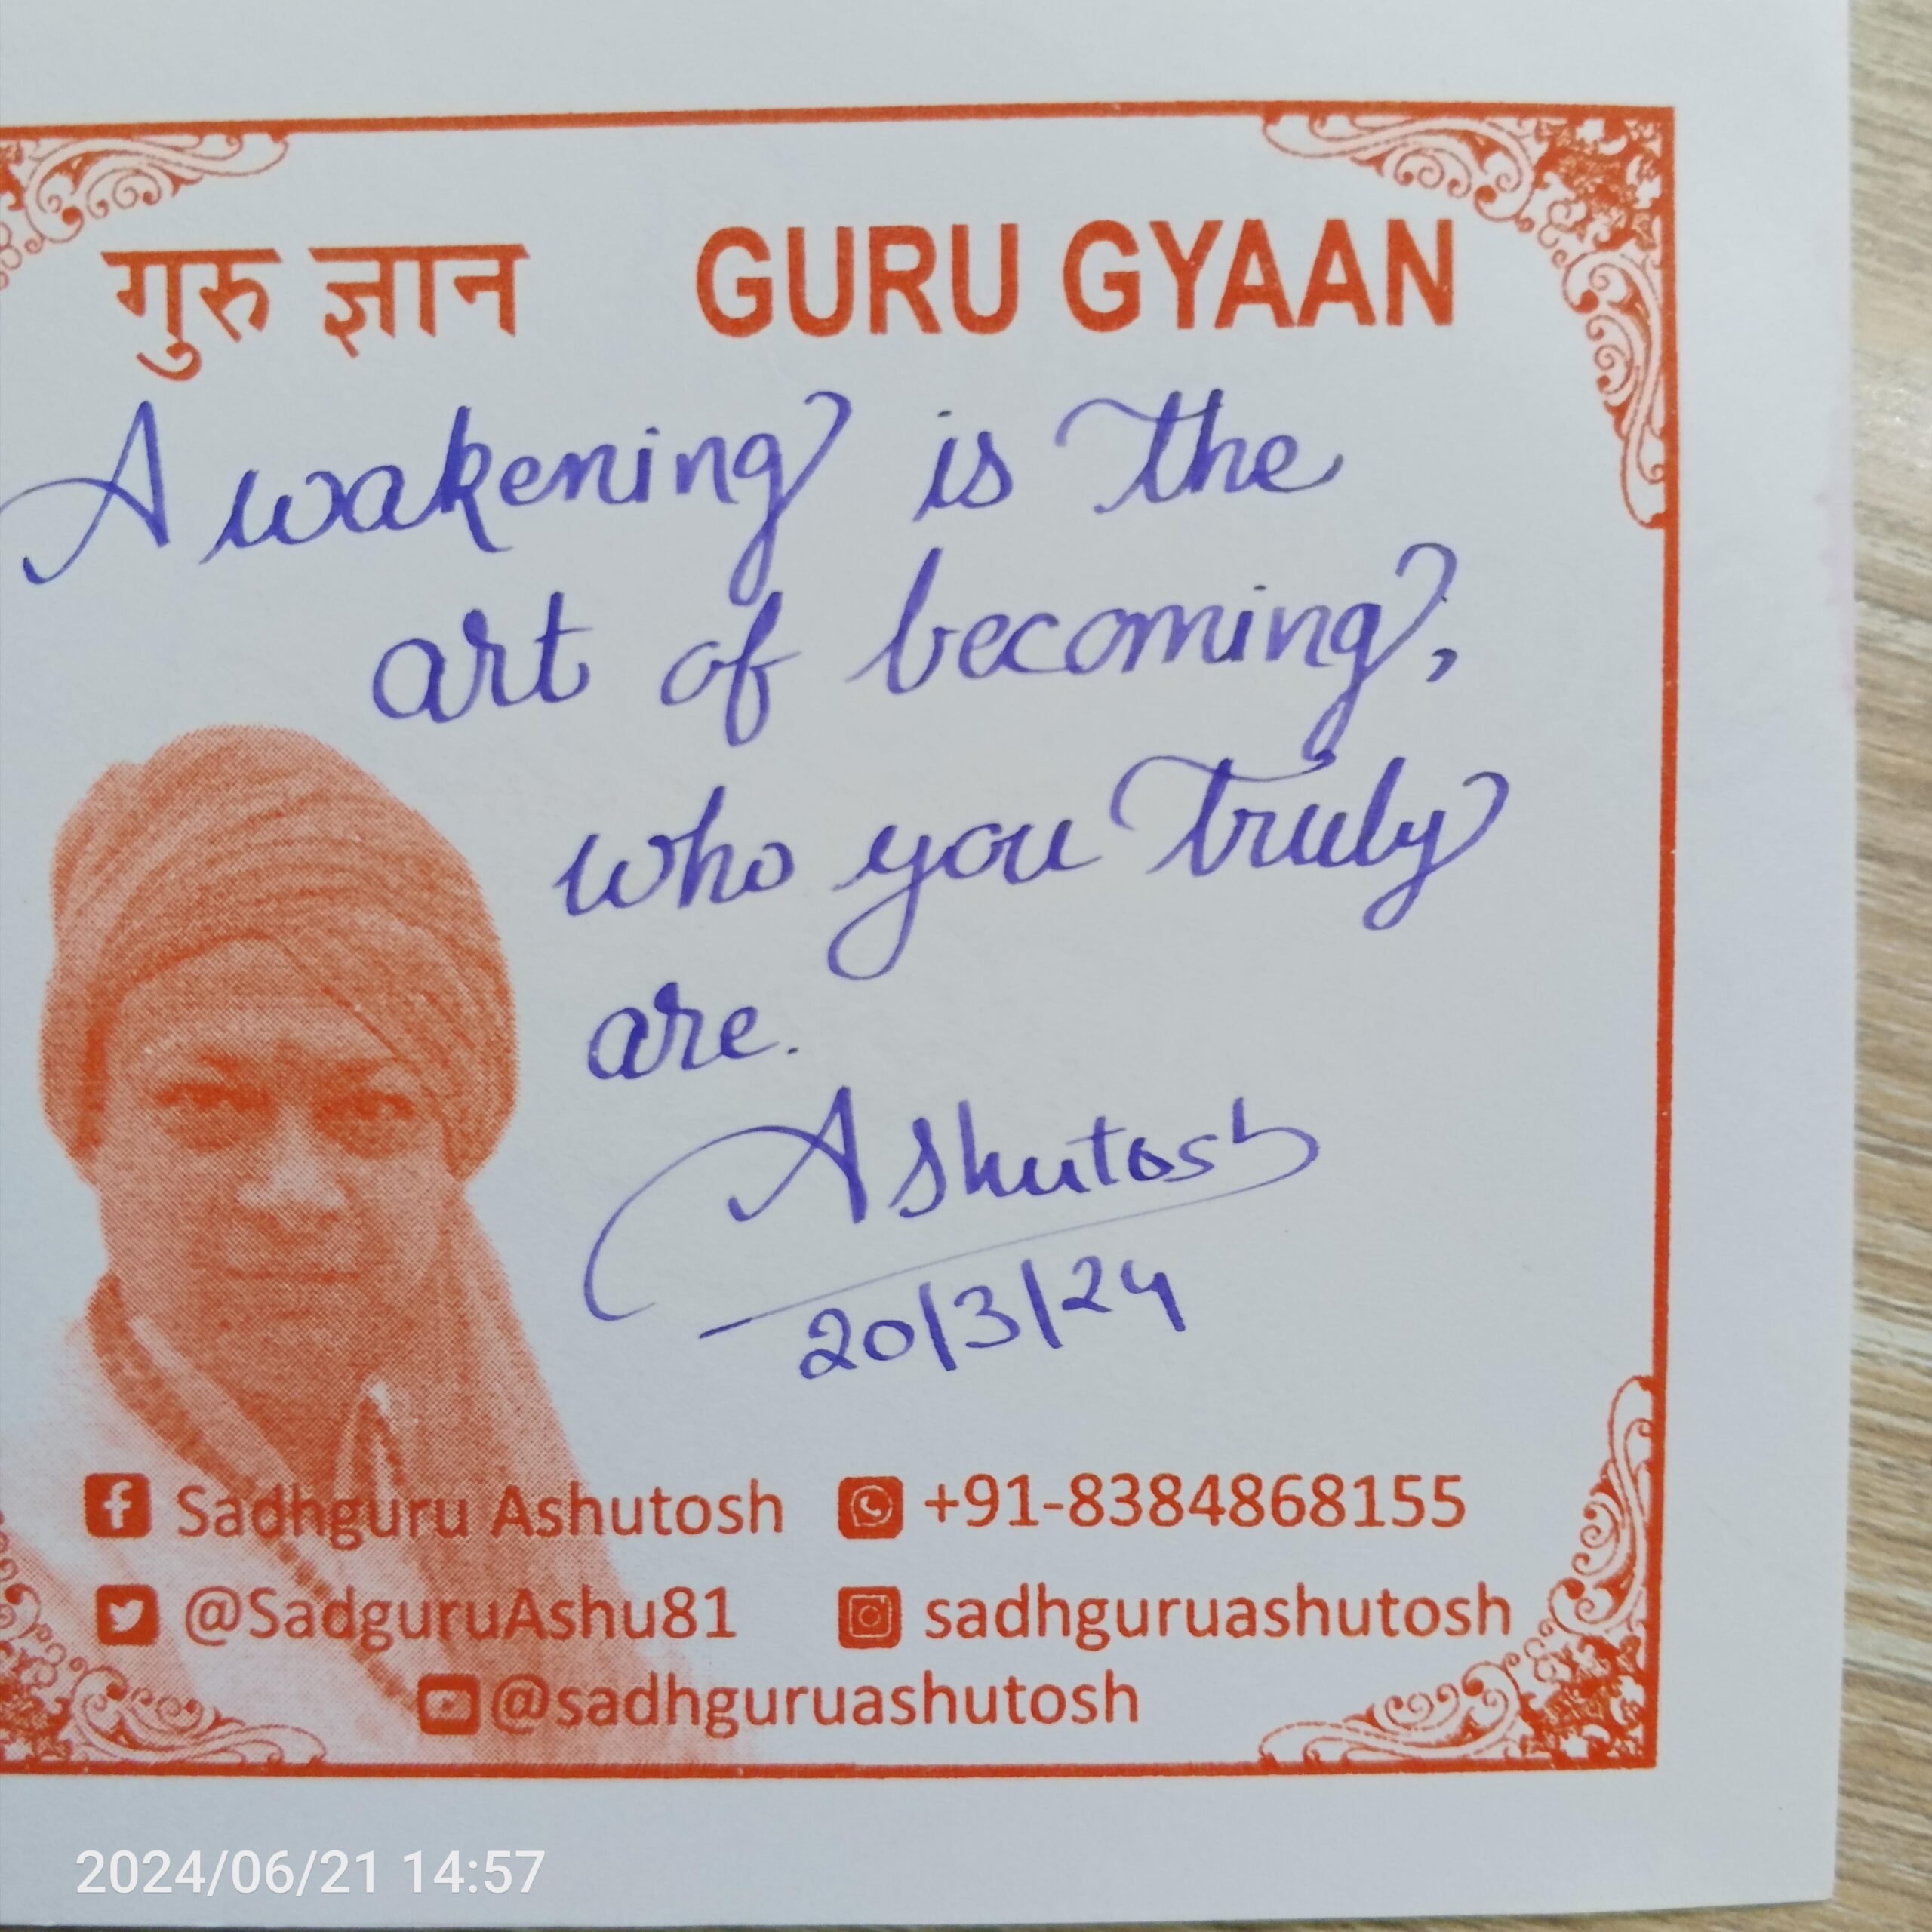 गुरु ज्ञान GURU GYAAN
Awakening is the
art of becoming,
who you truly
are.
Ashutosh
20/3/24
Sadhguru Ashutosh +91-8384868155
@SadguruAshu81 sadhguruashutosh
@sadhguruashutosh
2024/06/21 14:57